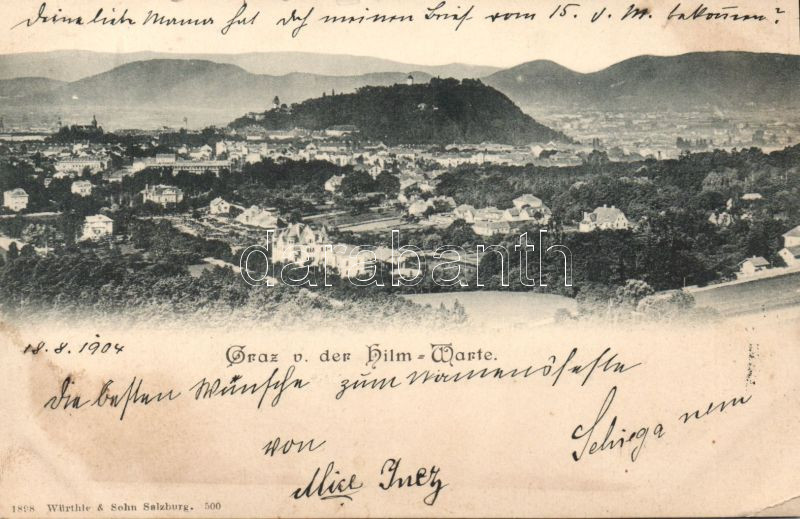 Deine liebe Mama hat doch meinen Brief vom 15. v. M. bekommen?
darabanth
18.8.1904
Graz v. der Hilm-Warte.
die besten Wünsche zum Namensfeste
von
1898 Würthle & Sohn Salzburg. 500